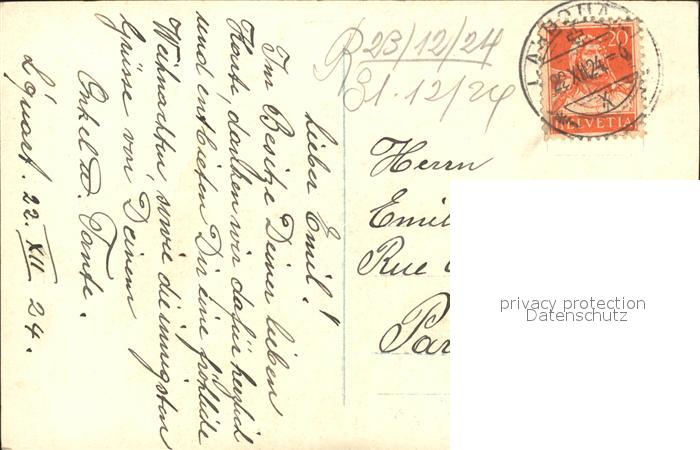 Lieber Emil!
Im Besitze Deiner lieben
Karte, danken wir dafür herzlich
und entbieten Dir eine fröhliche
Weihnachten sowie die innigsten
Grüsse von Deinem
Onkel u. Tante.
L'quart. 22. XII 24.
R 23/12/24
31.12/24
20
HELVETIA
22.XII.24.-6
X
Herrn
Emil
Rue
Par
privacy protection
Datenschutz